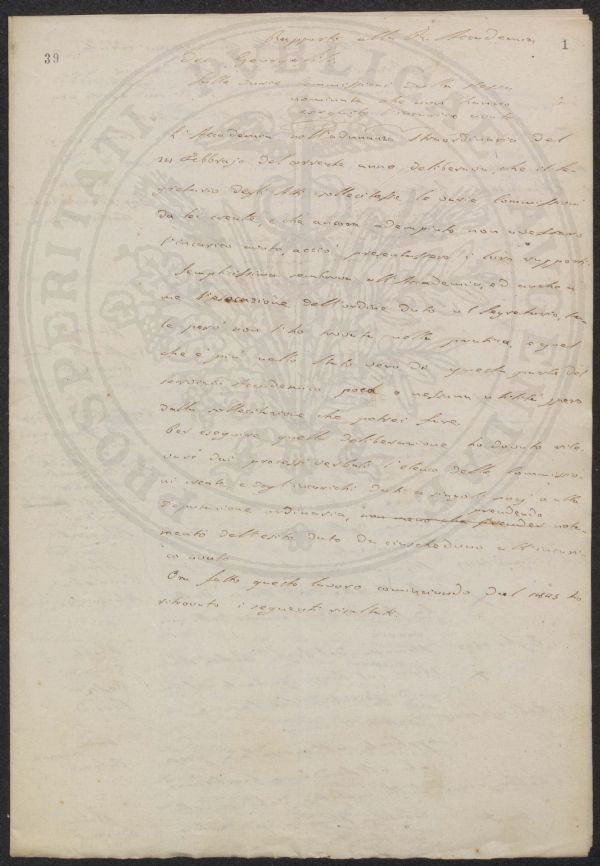 39
1
Rapporto alla R. Accademia
dei Georgofili
sulle varie commissioni dalla stessa
nominate che non hanno
eseguito l'incarico avuto
L'Accademia nell'adunanza straordinaria del
Febbrajo del corrente anno, deliberava, che il Se-
gretario degli Atti sollecitasse le varie Commissioni
da lei create, e che ancora adempiuto non avessero
l'incarico avuto, acciò presentassero i loro rapporti.
Semplicissima sembrava all'Accademia, ed anche a
me l'esecuzione dell'ordine dato al Segretario, ta-
le però non l'ho trovata nella pratica, e quel
che è più nello stato vero di questa parte del
servizio Accademico poca o nessuna utilità spero
dalla sollecitazione che potrei fare.
Per eseguire quella deliberazione ho dovuto rile-
vare dai processi verbali l'elenco delle Commissio-
ni create e degli incarichi dati a singoli o alla
Deputazione ordinaria, prendendo nota-
mento dell'esito dato da ciascheduno all'incari-
co avuto.
Ora fatto questo lavoro cominciando dal 1843 ho
ritrovato i seguenti risultati.
PROSPERITATI PUBLICAE AUGENDAE